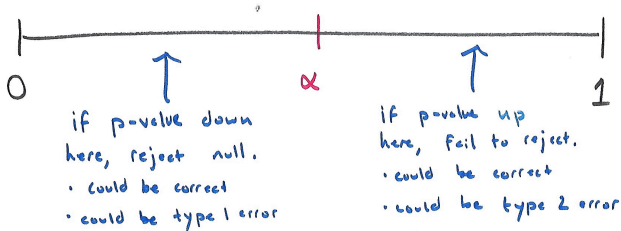 0
α
1
if p-value down
here, reject null.
• could be correct
• could be type 1 error
if p-value up
here, fail to reject.
• could be correct
• could be type 2 error